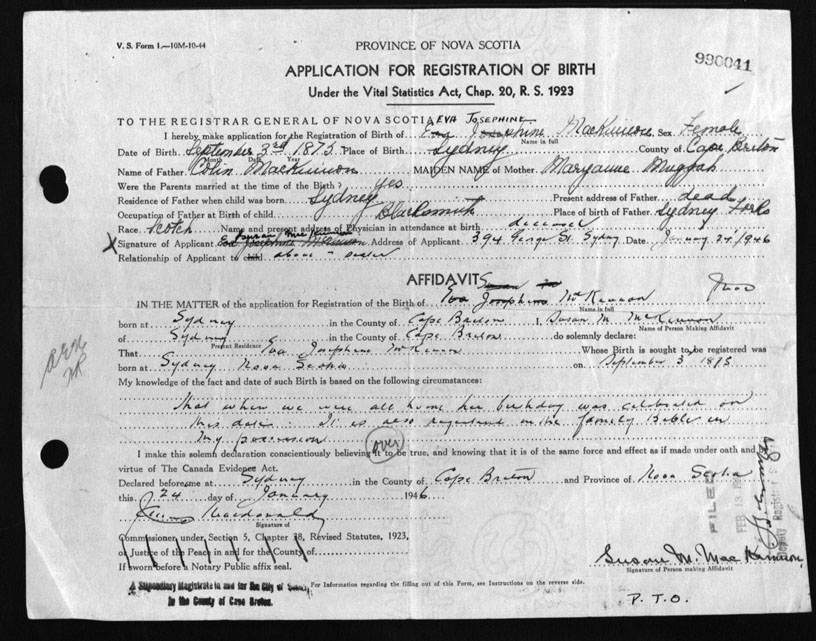 V. S. Form 1.—10M-10-44
PROVINCE OF NOVA SCOTIA
990041
APPLICATION FOR REGISTRATION OF BIRTH
Under the Vital Statistics Act, Chap. 20, R. S. 1923
TO THE REGISTRAR GENERAL OF NOVA SCOTIA
EVA JOSEPHINE
I hereby make application for the Registration of Birth of Eva Josephine MacKinnon Sex Female
Name in full
Date of Birth September 3rd 1875 Place of Birth Sydney County of Cape Breton
Month Date Year
Name of Father Colin MacKinnon MAIDEN NAME of Mother Maryanne Muggah
Were the Parents married at the time of the Birth? yes
Residence of Father when child was born Sydney Present address of Father dead
Occupation of Father at Birth of child Blacksmith Place of birth of Father Sydney Forks
Race Scotch Name and present address of Physician in attendance at birth deceased
Susan MacKinnon
X Signature of Applicant Eva Josephine McKinnon Address of Applicant 394 George St. Sydney Date January 24/1946
Relationship of Applicant to child above - sister
AFFIDAVIT
IN THE MATTER of the application for Registration of the Birth of Eva Josephine McKinnon
Name in full
born at Sydney in the County of Cape Breton I, Susan M. McKinnon
Name of Person Making Affidavit
of Sydney in the County of Cape Breton do solemnly declare:
Present Residence
That Eva Josephine McKinnon Whose Birth is sought to be registered was
born at Sydney Nova Scotia on September 3 1875
My knowledge of the fact and date of such Birth is based on the following circumstances:
That when we were all home her birthday was celebrated on
this date. It is also registered in the family Bible in
my possession
(over)
I make this solemn declaration conscientiously believing it to be true, and knowing that it is of the same force and effect as if made under oath and by
virtue of The Canada Evidence Act.
Declared before me at Sydney in the County of Cape Breton and Province of Nova Scotia
this 24 day of January 1946
Macdonald
Signature of
Commissioner under Section 5, Chapter 38, Revised Statutes, 1923,
or Justice of the Peace in and for the County of
If sworn before a Notary Public affix seal.
FILED
FEB 13
Deputy Registrar
Susan M. MacKinnon
Signature of Person making Affidavit
A Stipendiary Magistrate in and for the City of Sydney
in the County of Cape Breton.
For Information regarding the filling out of this Form, see Instructions on the reverse side.
P.T.O.